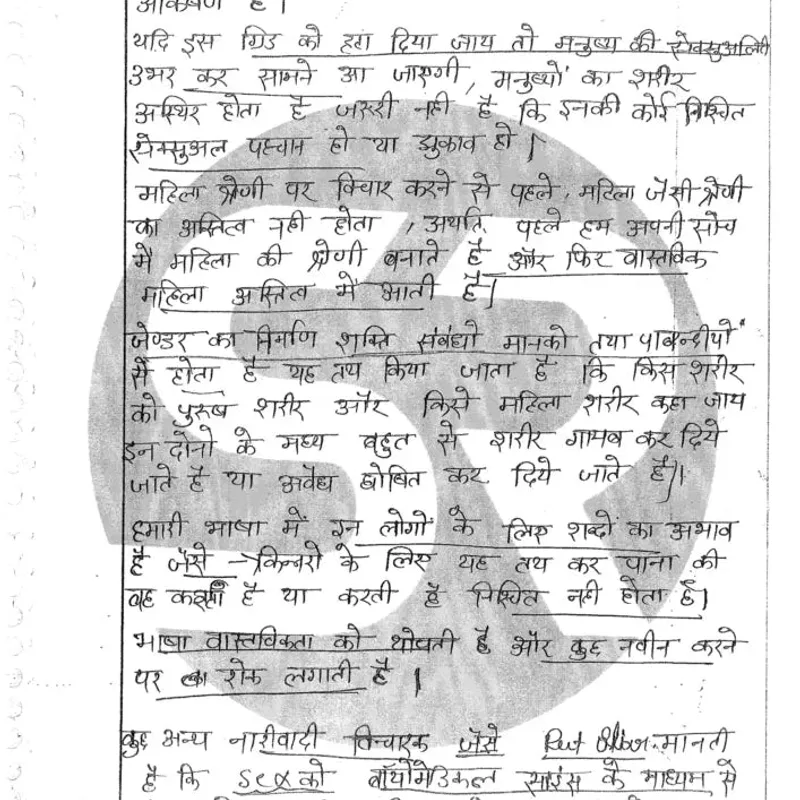 आकर्षण है ।
यदि इस ग्रिड को हटा दिया जाय तो मनुष्य की सेक्सुअलिटी
उभर कर सामने आ जाएगी, मनुष्यों का शरीर
अस्थिर होता है जरूरी नही है कि इनकी कोई निश्चित
सेक्सुअल पहचान हो या झुकाव हो ।
महिला श्रेणी पर विचार करने से पहले, महिला जैसी श्रेणी
का अस्तित्व नही होता, अर्थात् पहले हम अपनी सोच
में महिला की श्रेणी बनाते है और फिर वास्तविक
महिला अस्तित्व में आती है।
जेण्डर का निर्माण शक्ति संबंधो मानको तथा पाबन्दीयों
से होता है यह तय किया जाता है कि किस शरीर
को पुरूष शरीर और किसे महिला शरीर कहा जाय
इन दोनो के मध्य बहुत से शरीर गायब कर दिये
जाते है या अवैध घोषित कर दिये जाते है।
हमारी भाषा में इन लोगों के लिए शब्दों का अभाव
है जैसे → किन्नरो के लिए यह तय कर पाना की
वह है या करती है निश्चित नही होता है।
भाषा वास्तविकता को थोपती है और कुछ नवीन करने
पर रोक लगाती है ।
कुछ अन्य नारीवादी विचारक जैसे मानती
है कि sex को बॉयोमेडिकल साइंस के माध्यम से